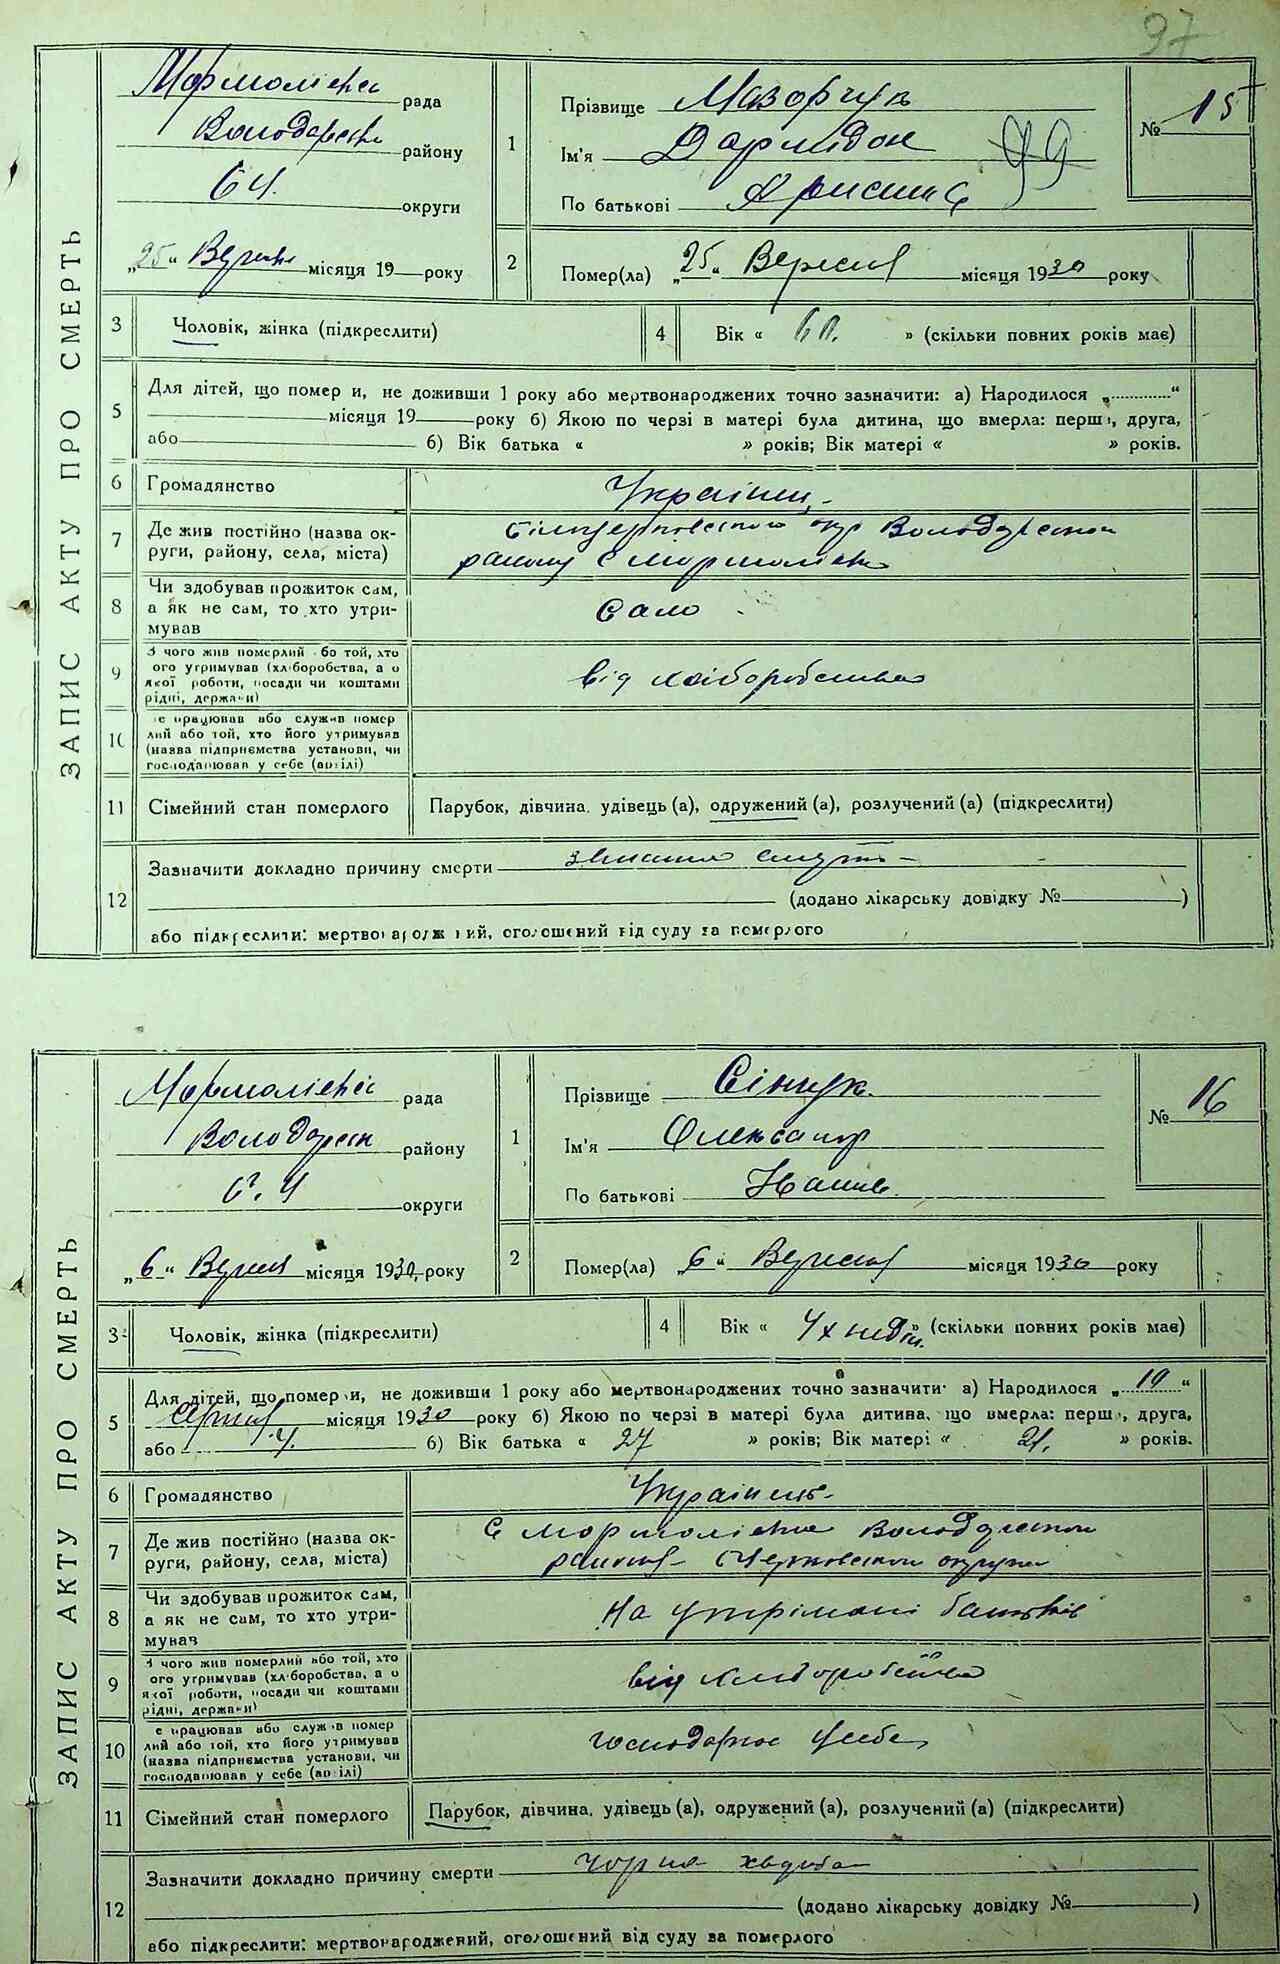 97
ЗАПИС АКТУ ПРО СМЕРТЬ
Мормоліївс рада
Володарсько району
БЦ. округи
„25“ Вересня місяця 19 року
1
Прізвище Мазорчук
Ім'я
По батькові
№ 15
2
Помер(ла) „25“ Вересня місяця 1930 року
3 Чоловік, жінка (підкреслити)
4 Вік « 60. » (скільки повних років має)
5
Для дітей, що помер и, не доживши 1 року або мертвонароджених точно зазначити: а) Народилося „ “
місяця 19 року б) Якою по черзі в матері була дитина, що вмерла: перш , друга,
або б) Вік батька « » років; Вік матері « » років.
6 Громадянство Українець
7 Де жив постійно (назва ок-
руги, району, села, міста)
Білоцерковського окр Володарського
району с
8 Чи здобував прожиток сам,
а як не сам, то хто утри-
мував
Само
9 З чого жив померлий або той, хто
ого утримував (хліборобства, а о
якої роботи, посади чи коштами
рідні, держави)
від хліборобства
10 е працював або служив помер
лий або той, хто його утримував
(назва підприємства установи, чи
господарював у себе (вдома)
11 Сімейний стан померлого Парубок, дівчина, удівець (а), одружений (а), розлучений (а) (підкреслити)
12
Зазначити докладно причину смерти смерть
(додано лікарську довідку № )
або підкреслити: мертвонароджений, оголошений від суду за померлого
ЗАПИС АКТУ ПРО СМЕРТЬ
Мормоліївс рада
Володарськ району
Б. Ц округи
„6“ Вересня місяця 1930 року
1
Прізвище Сінчук
Ім'я Олександр
По батькові
№ 16
2
Помер(ла) „6“ Вересня місяця 1930 року
3 Чоловік, жінка (підкреслити)
4 Вік « 4х неділ. » (скільки повних років має)
5
Для дітей, що помер и, не доживши 1 року або мертвонароджених точно зазначити: а) Народилося „10“
Серпня місяця 1930 року б) Якою по черзі в матері була дитина, що вмерла: перш , друга,
або б) Вік батька « 27 » років; Вік матері « 21. » років.
6 Громадянство Українець
7 Де жив постійно (назва ок-
руги, району, села, міста)
с Володарського
району БЦерковської округи
8 Чи здобував прожиток сам,
а як не сам, то хто утри-
мував
На утрімані батьків
9 З чого жив померлий або той, хто
ого утримував (хліборобства, а о
якої роботи, посади чи коштами
рідні, держави)
від хліборобства
10 е працював або служив помер
лий або той, хто його утримував
(назва підприємства установи, чи
господарював у себе (вдома)
господарює усебе
11 Сімейний стан померлого Парубок, дівчина, удівець (а), одружений (а), розлучений (а) (підкреслити)
12
Зазначити докладно причину смерти чорна хвороба
(додано лікарську довідку № )
або підкреслити: мертвонароджений, оголошений від суду за померлого